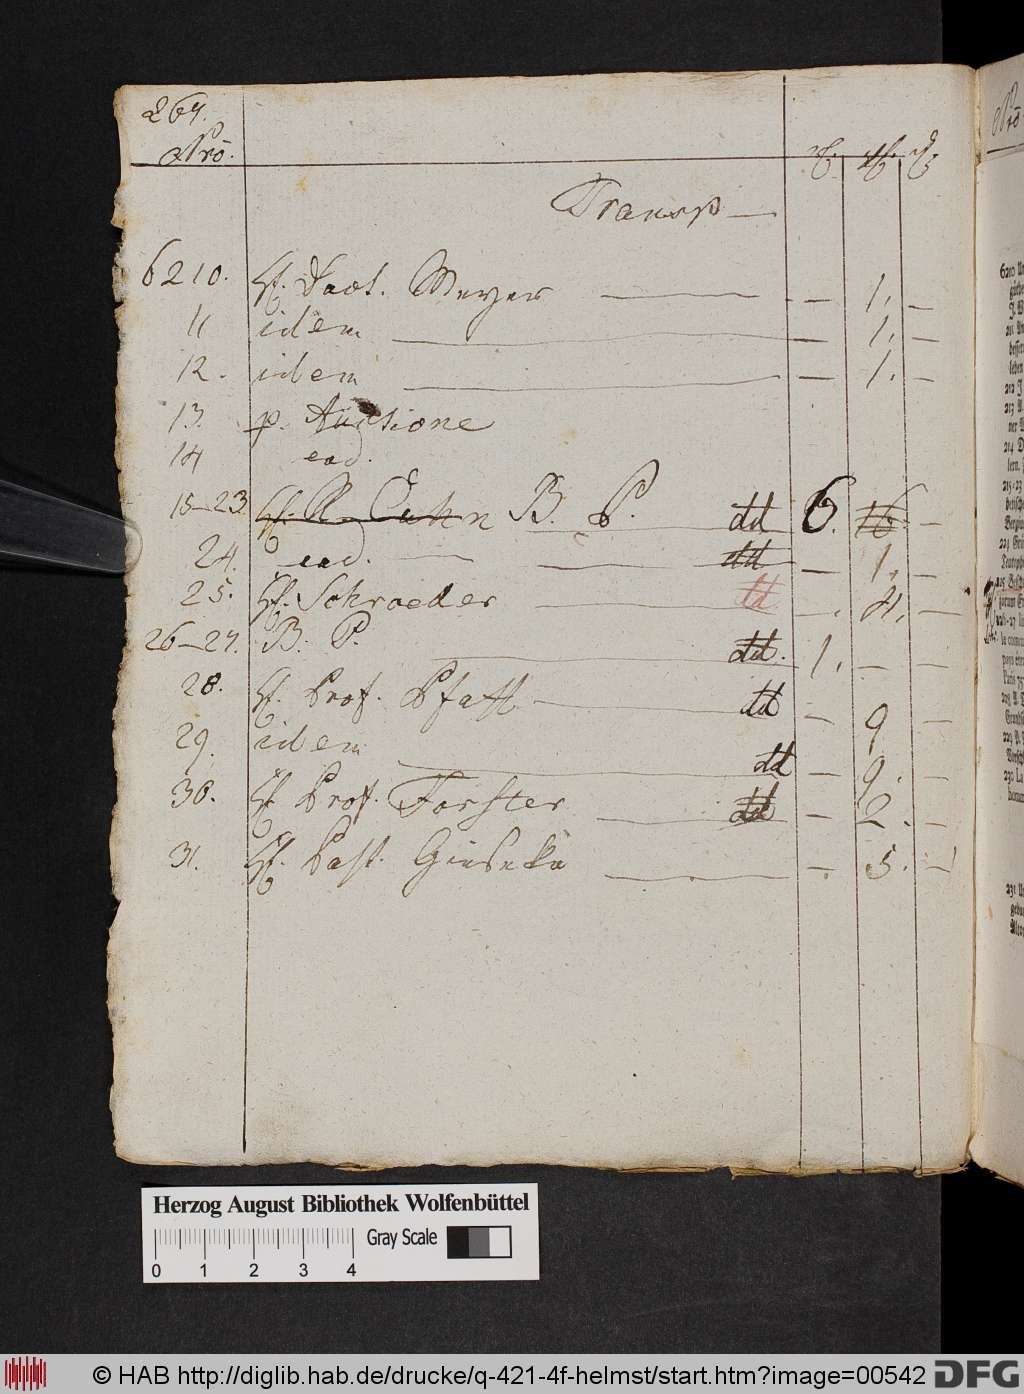 264.
Nro.
Transp
6210. H. Doct. Meyer — 1. —
11 idem — 1. —
12. idem — 1. —
13. p. Auctione
14 ead.
15-23. H. R. Cahn B. P. dd 6. 16 —
24. ead. — dd — 1. —
25. H. Schraeder dd — 4. —
26-27. B. P. dd. 1. — —
28. H. Prof. Pfaff dd — 9 —
29. idem dd — 9. —
30. H. Prof. Forster dd — 2. —
31. H. Past. Gieseke — 5. —
Herzog August Bibliothek Wolfenbüttel
Gray Scale
0 1 2 3 4
© HAB http://diglib.hab.de/drucke/q-421-4f-helmst/start.htm?image=00542
DFG